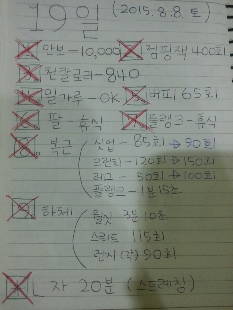 19일 (2015.8.8.토)
만보-10,000 점핑잭 400회
천칼로리-840
밀가루-OK 버피 65회
팔-휴식 플랭크-휴식
복근 싯업-85회→90회
크런치-120회→150회
레그-90회→100회
플랭크-1분15초
하체
스쿼트 115회
런지(각) 90회
L자 20분 (스트레칭)